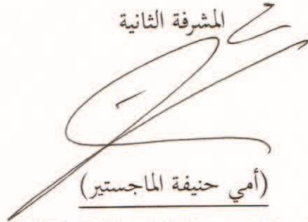 المشرفة الثانية
(أمي حنيفة الماجستير)